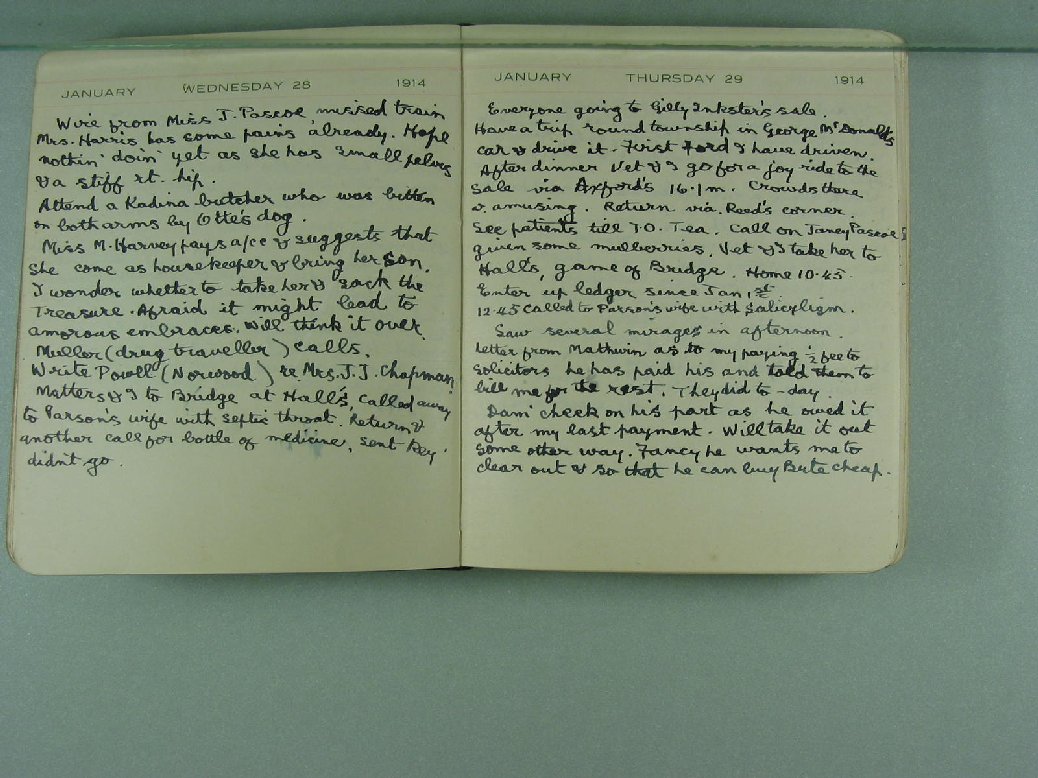 JANUARY WEDNESDAY 28 1914
Wire from Miss J. Pascoe, missed train
Mrs. Harris has some pains already. Hope
nottin' doin' yet as she has small pelvis
& a stiff rt. hip.
Attend a Kadina butcher who was bitten
on both arms by Otte's dog.
Miss M. Harvey pays a/cc & suggests that
she come as housekeeper & bring her son.
I wonder whether to take her & sack the
Treasure. Afraid it might lead to
amorous embraces. Will think it over.
Muller (drug traveller) calls.
Write Powell (Norwood) re. Mrs. J. J. Chapman
Matters & I to Bridge at Hall's, called away
to Parson's wife with septic throat. Return &
another call for bottle of medicine, sent Rey.
didn't go.
JANUARY THURSDAY 29 1914
Everyone going to Gilly Inkster's sale.
Have a trip round township in George McDonald's
car & drive it. First Ford I have driven.
After dinner Vet & I go for a joy ride to the
sale via Axford's 16.1m. Crowds there
v. amusing. Return via. Reed's corner.
See patients till 7.0. Tea. Call on Janey Pascoe &
given some mulberries. Vet & I take her to
Hall's, game of Bridge. Home 10.45.
Enter up ledger since Jan 1st
12.45 Called to Parson's wife with
Saw several mirages in afternoon
Letter from Mathwin as to my paying ½ fee to
solicitors he has paid his and told them to
bill me for the rest. They did to-day.
Dam' cheek on his part as he owed it
after my last payment. Will take it out
some other way. Fancy he wants me to
clear out & so that he can buy Bute cheap.